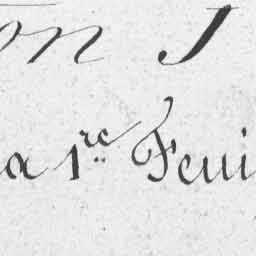 on J
la 1re Feui